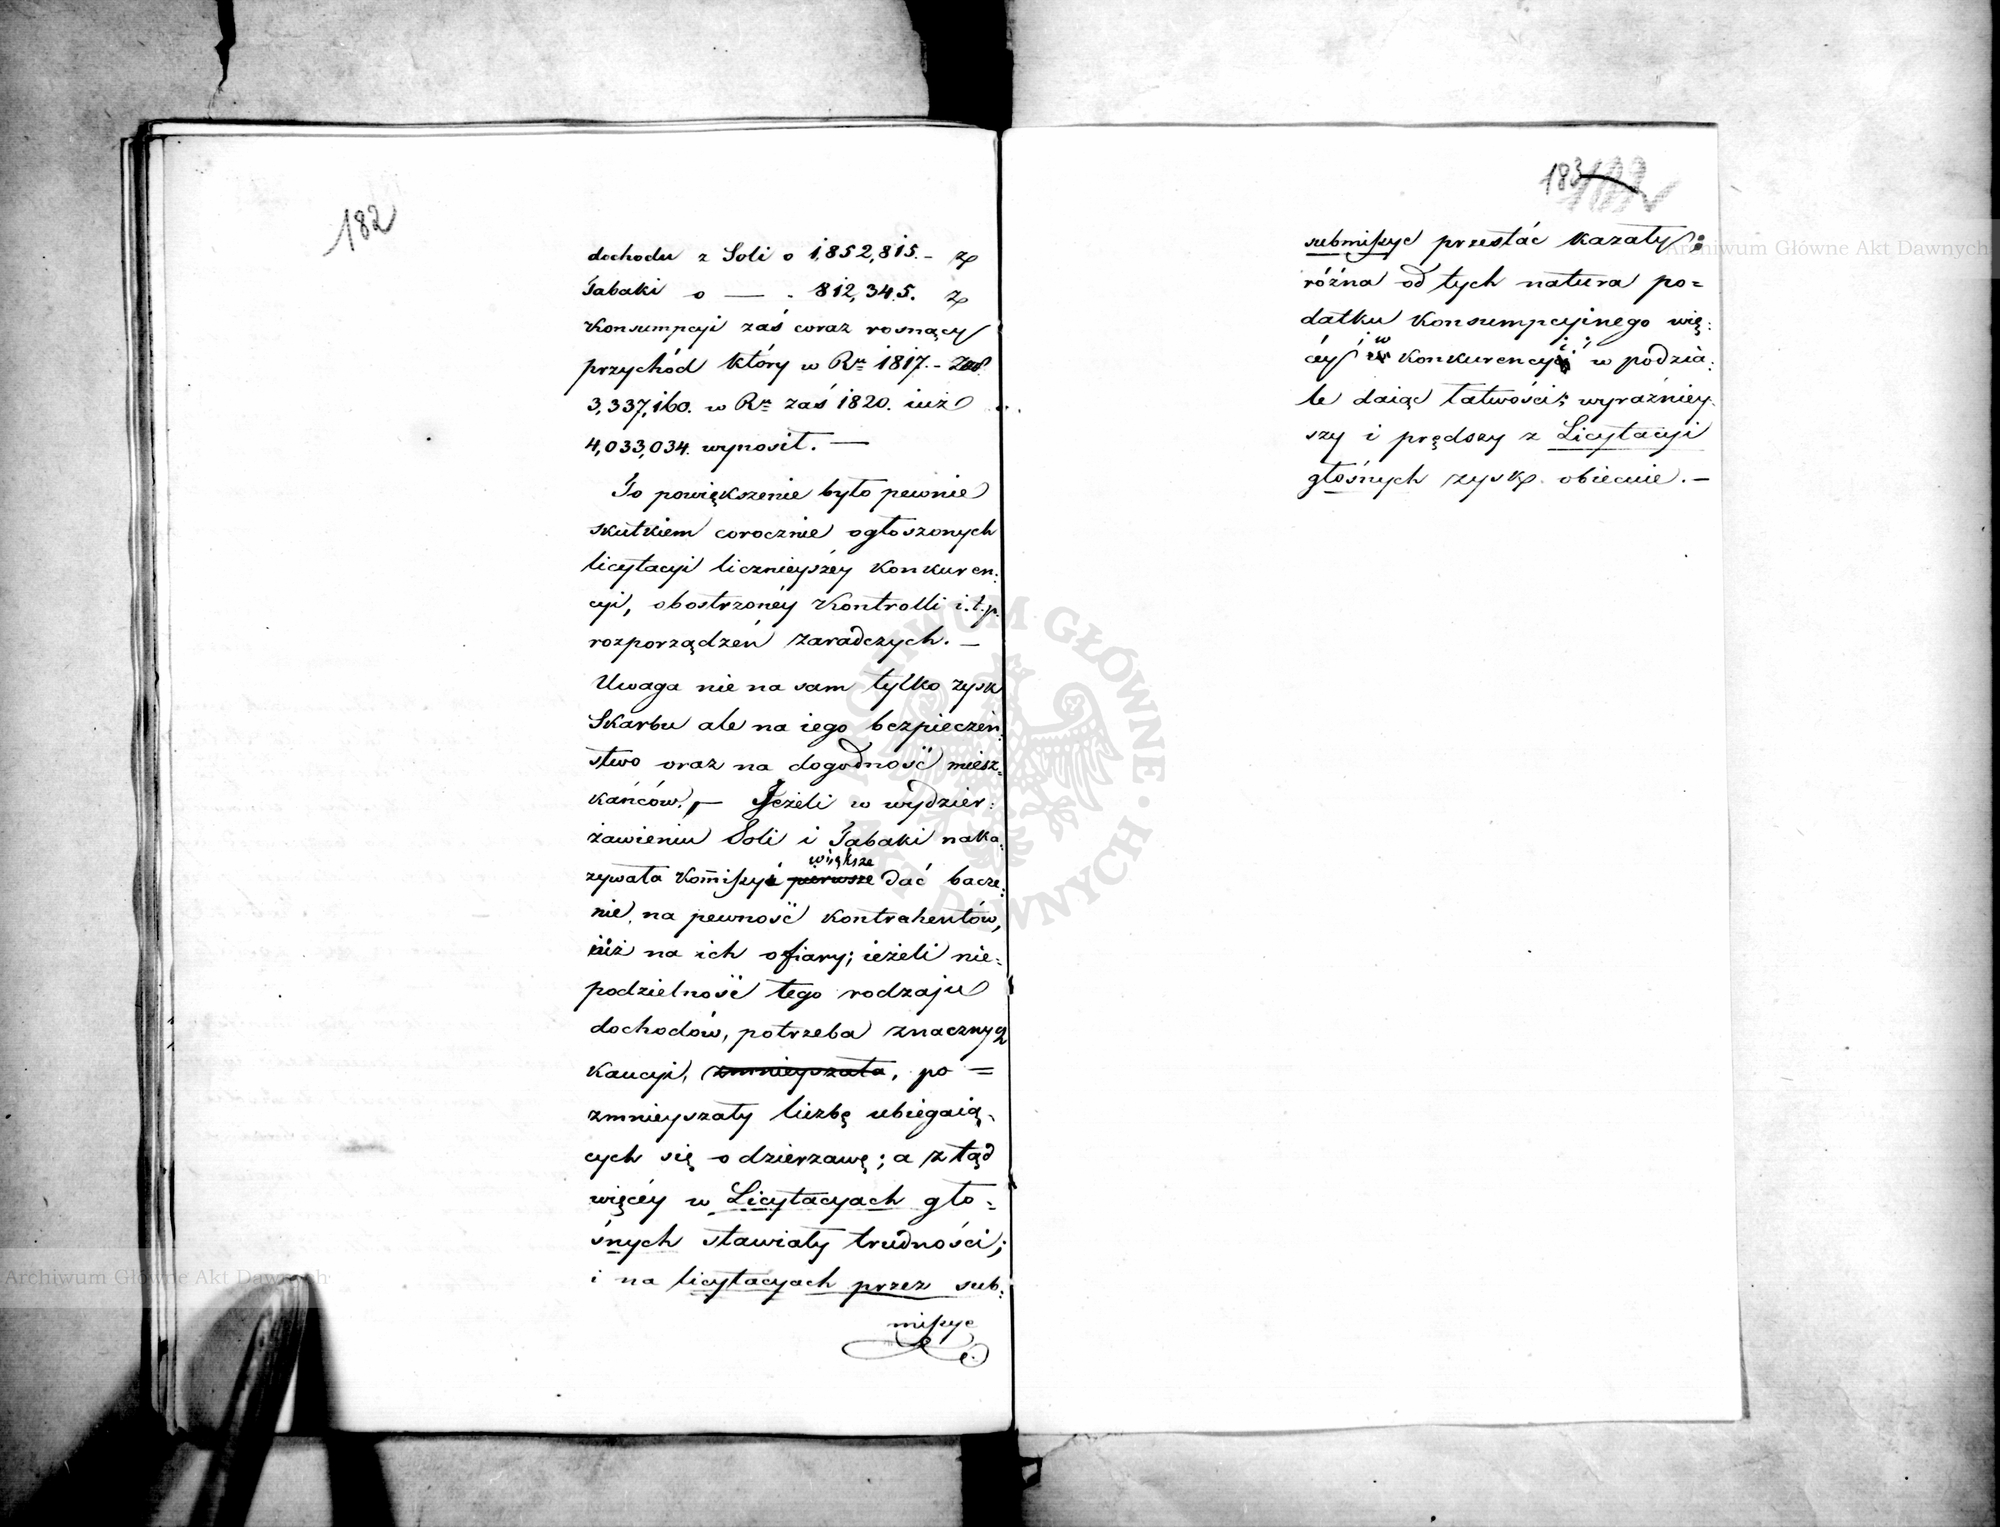 182
dochodu z Soli o 1,852,815.-
Tabaki o — . 812,345.
Konsumpcyi zaś coraz rosnący
przychód który w Rkᵘ 1817.-
3,337,160. w Rkᵘ zaś 1820. iuż
4,033,034. wynosił. —
To powiększenie było pewnie
skutkiem corocznie ogłoszonych
licytacyi licznieyszéy Konkuren:
cyi, obostrzonéy Kontrolli i.t.p.
rozporządzeń zaradczych. —
Uwaga nie na sam tylko zysk
Skarbu ale na iego bezpieczeń:
stwo oraz na dogodność miesz:
kańców. — Jeżeli w wydzier:
żawieniu Soli i Tabaki naka:
większe
zywała Kom̄issyi pierwsze dać bacze:
nie, na pewność kontrahentów,
niż na ich ofiary; ieżeli nie:
podzielność tego rodzaju
dochodów, potrzeba znacznych
Kaucyi, zmnieyszała, po =
zmnieyszały liczbę ubiegaią:
cych się o dzierzawę; a ztąd
więcéy w Licytacyach gło:
śnych stawiały trudności;
i na licytacyach przez sub:
missye
183
submissye przestać kazały:
różna od tych natura po=
datku Konsumpcyinego wię:
céy w konkurencyi i w podzia:
le daiąc łatwości; wyraźniey:
szy i prędszy z Licytacyi
głośnych zysk obiecuie. —
Archiwum Główne Akt Dawnych
Archiwum Główne Akt Dawnych
ARCHIWUM GŁÓWNE AKT DAWNYCH